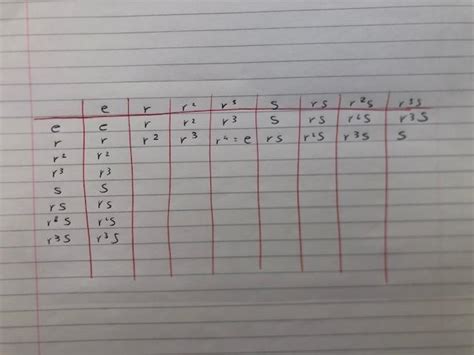 e r r² r³ s rs r²s r³s
e e r r² r³ s rs r²s r³s
r r r² r³ r⁴=e rs r²s r³s s
r² r²
r³ r³
s s
rs rs
r²s r²s
r³s r³s